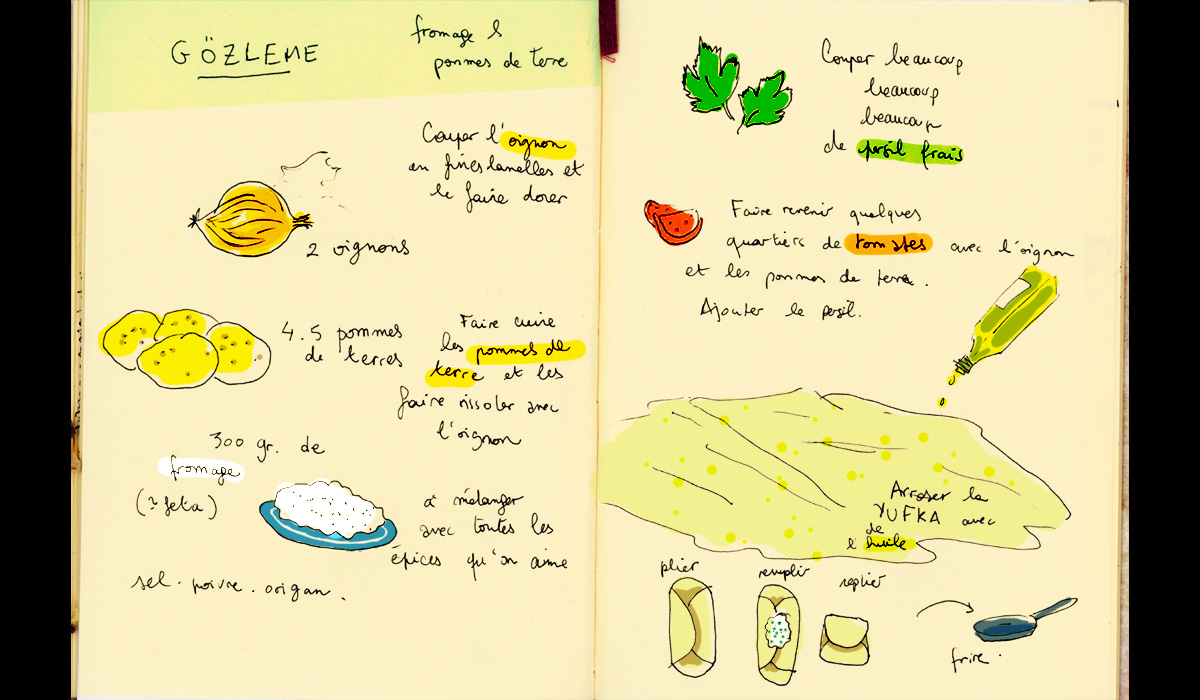 GÖZLEME
fromage &
pommes de terre
Couper l'oignon
en fines lamelles et
le faire dorer
2 oignons
4.5 pommes
de terres
Faire cuire
les pommes de
terre et les
faire rissoler avec
l'oignon
300 gr. de
fromage
(~ feta)
à mélanger
avec toutes les
épices qu'on aime
sel . poivre . origan .
Couper beaucoup
beaucoup
beaucoup
de persil frais
Faire revenir quelques
quartiers de tomates avec l'oignon
et les pommes de terre .
Ajouter le persil.
Arroser la
YUFKA avec
de
l'huile
plier
remplir
replier
frire .